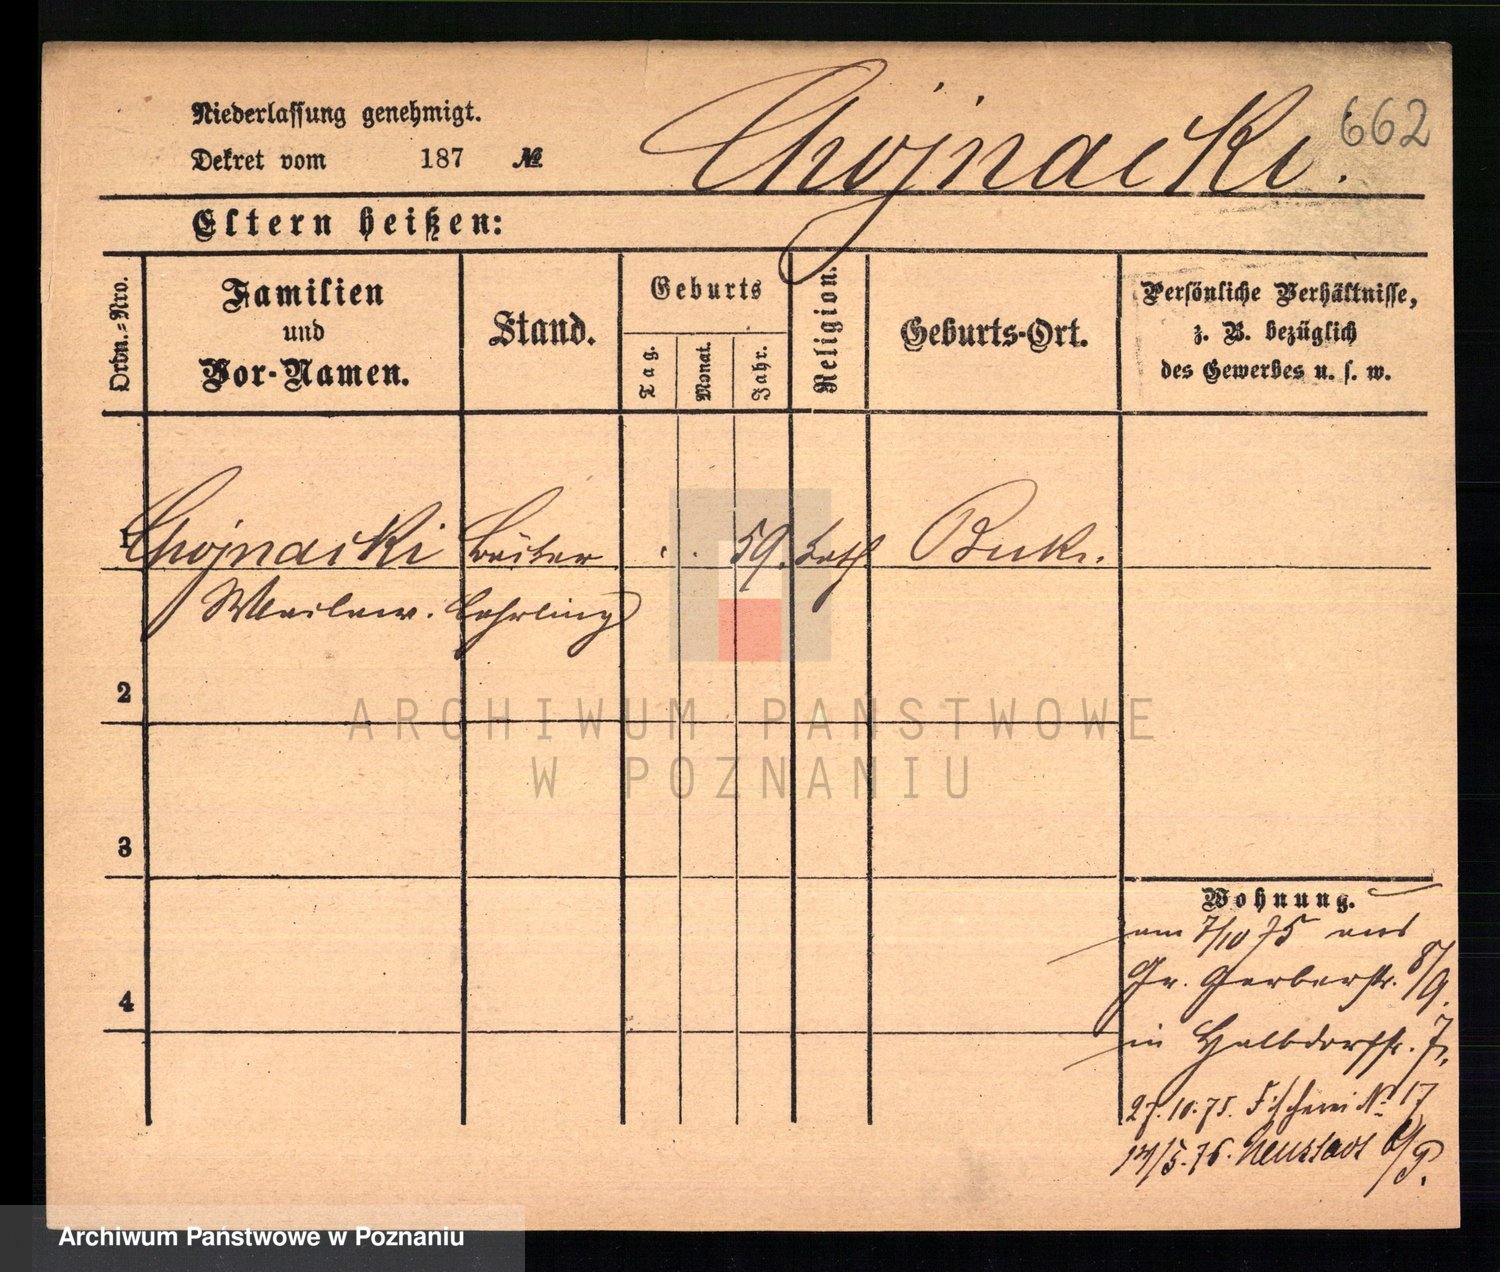 662
Niederlassung genehmigt.
Chojnacki.
Dekret vom 187 №
Eltern heißen:
Ordn.=Nro.
Familien
und
Vor-Namen.
Stand.
Geburts
Tag.
Monat.
Jahr.
Religion.
Geburts-Ort.
Persönliche Verhältnisse,
z. B. bezüglich
des Gewerbes u. s. w.
1 Chojnacki 59. kath Buk.
Lehrling
2
ARCHIWUM PAŃSTWOWE
W POZNANIU
3
Wohnung.
am 7/10 75 aus
Gr. Gerberstr. 8/9.
4
in Halbdorfstr. 7,
27.10.75. Fischerei No 17
14/5.76. Neustadt b/B.
Archiwum Państwowe w Poznaniu